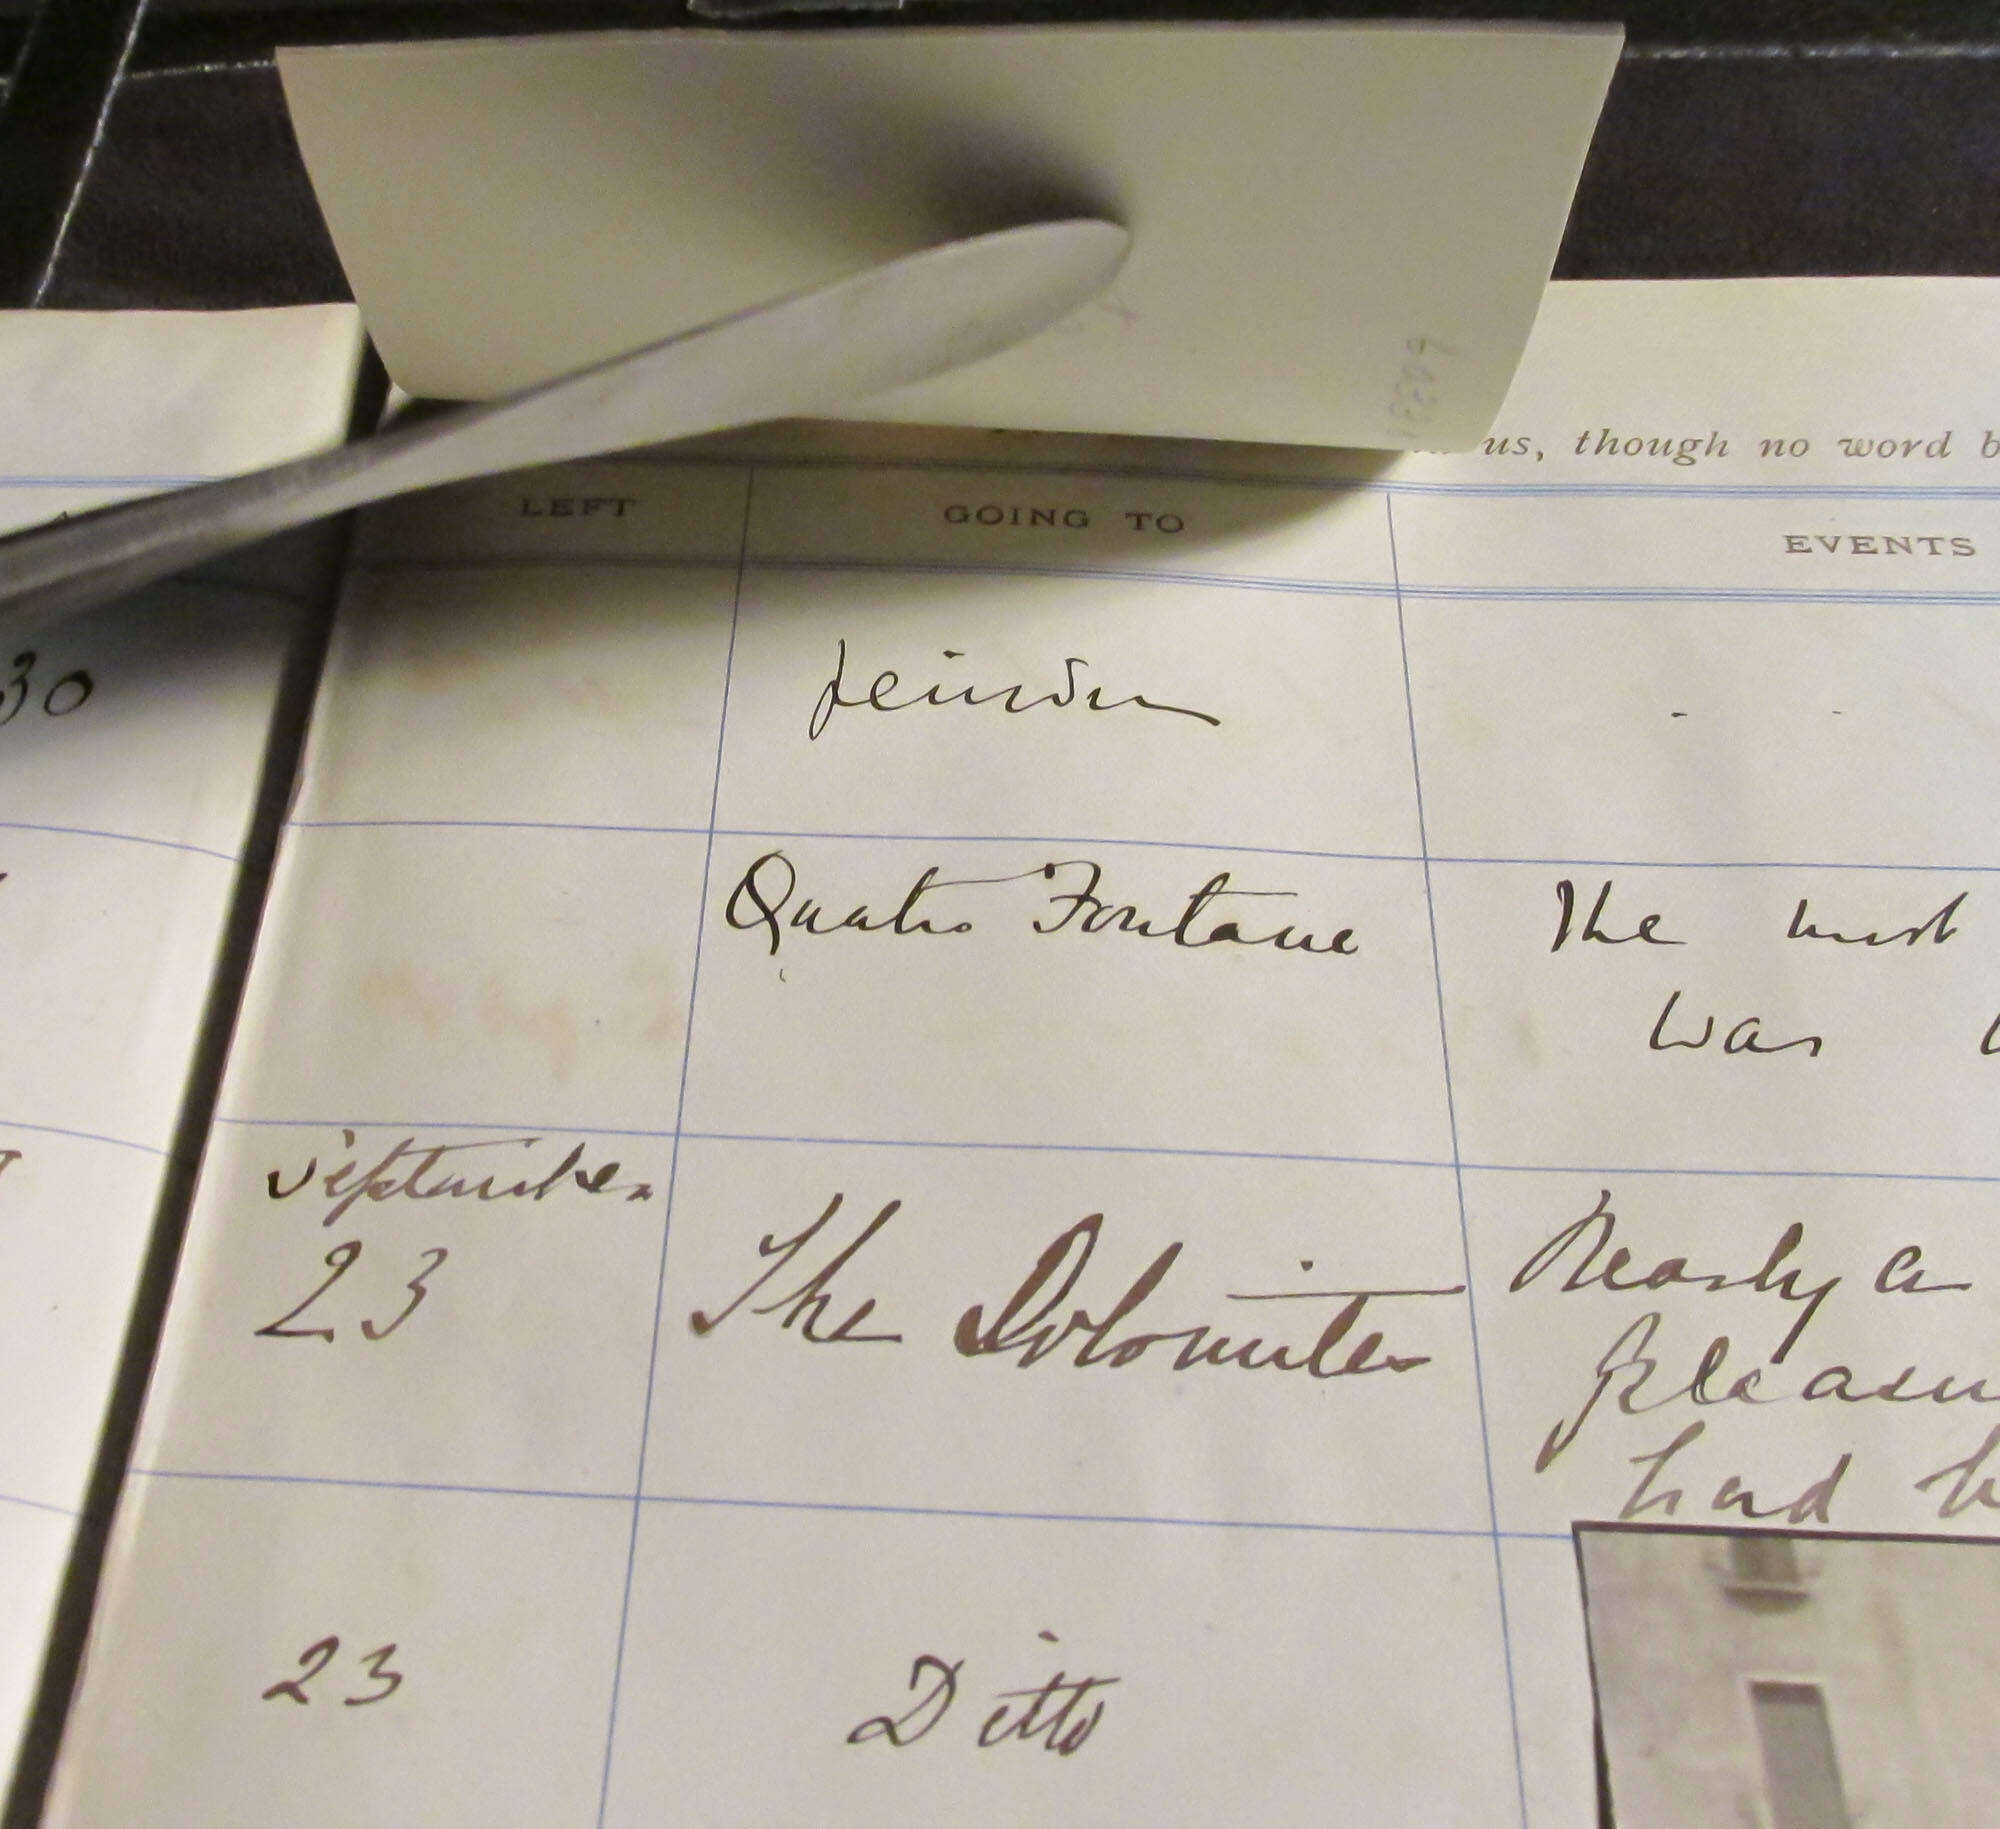 us, though no word b
LEFT GOING TO EVENTS
30
Quatro Fontane The most
was
September
23 The Dolomites Nearly a
pleasu
had b
23 Ditto